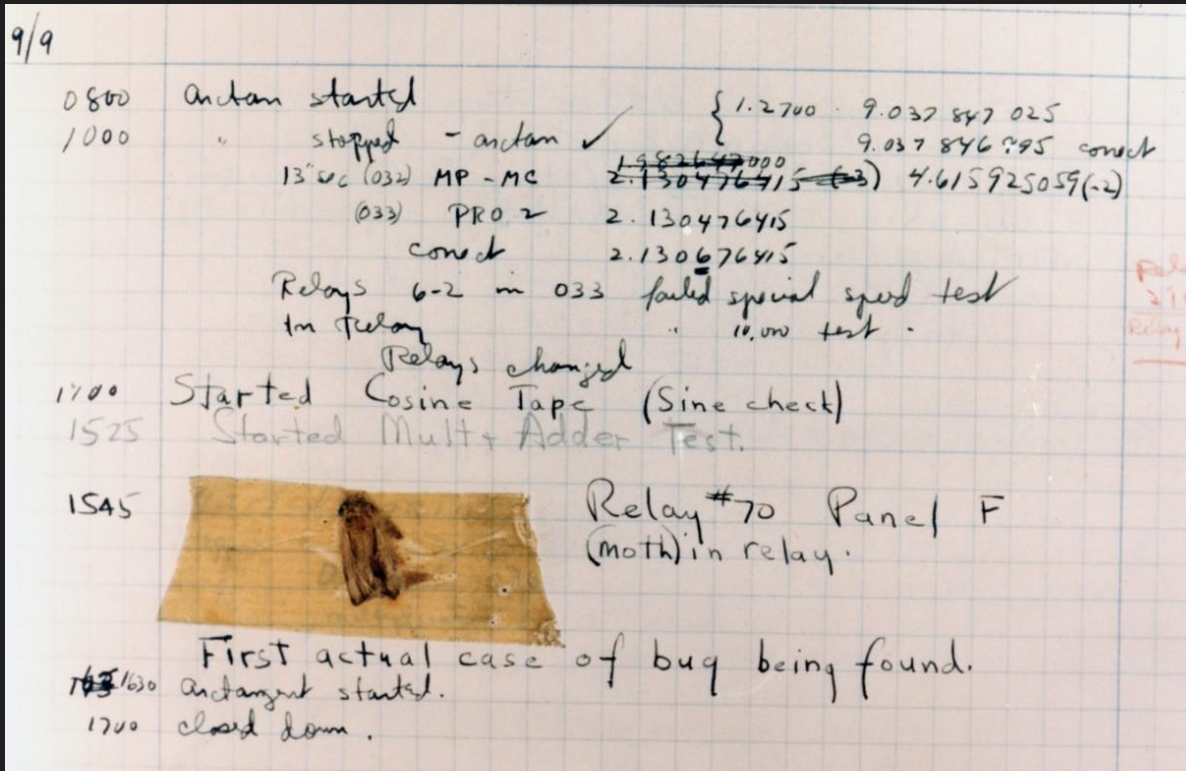 9/9
0800 arctan started { 1.2700 9.037 847 025
1000 " stopped - arctan ✓ 9.037 846 995 correct
13"uc (032) MP - MC 1.982647000 2.130476415 (-3) 4.615925059(-2)
(033) PRO 2 2.130476415
correct 2.130676415
Relays 6-2 in 033 failed special speed test
In Relay " 10,000 test .
Relays changed
1700 Started Cosine Tape (Sine check)
1525 Started Mult + Adder Test.
1545 Relay #70 Panel F
(moth) in relay.
First actual case of bug being found.
1630 arctangent started.
1700 closed down .
Relay